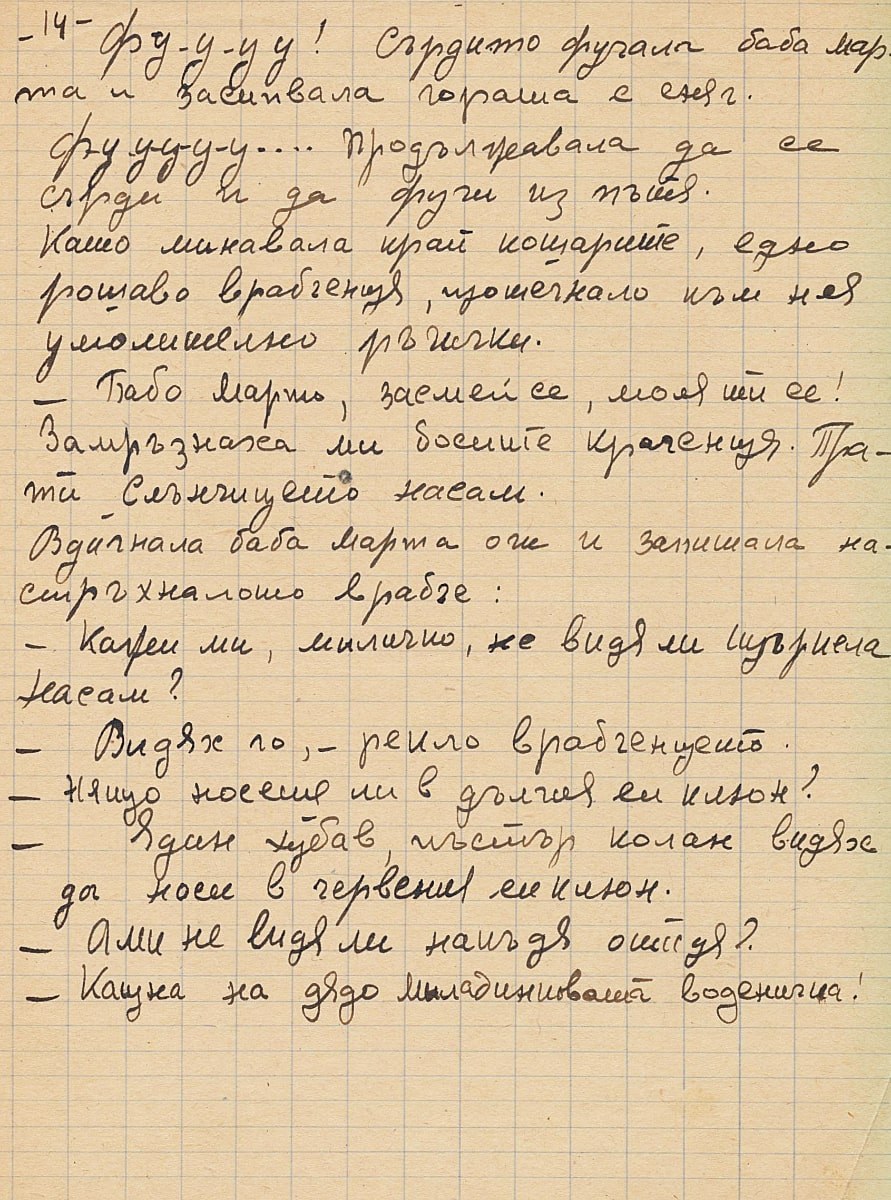 -14- Фу-у-у у! Сърдито фучала баба мар-
та и засипвала гората с сняг.
Фу у-у-у-у.... Продължавала да се
сърди и да фучи из пътя.
Като минавала край кошарите, едно
рошаво врабченце, протегнало към нея
умолително ръчички.
– Бабо Марто, засмей се, моля ти се!
Замръзнаха ми босите краченця. Пра-
ти Слънчицето насам.
Вдигнала баба Марта очи и запитала на-
стръхналото врабче:
– Кажи ми, миличко, не видя ли Щъркела
насам?
– Видях го, – рекло врабченцето.
– Нящо носеше ли в дългия си клюн?
– Един хубав, пъстър колан видях
да носи в червения си клюн.
– Ами не видя ли накъдя отидя?
– Кацна на дядо Миладиновата воденичка!